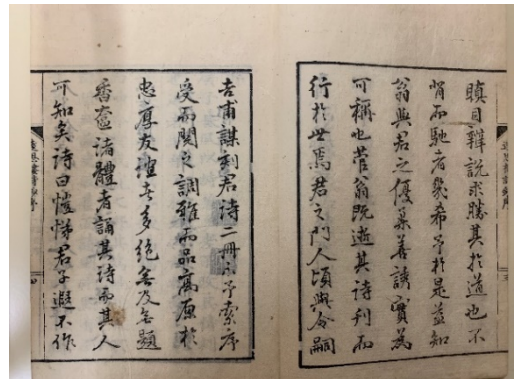 瞋目辯說求勝其於道也不
背而馳者幾希予於是益知
翁與君之優柔善談實為
可稱也菅翁既逝其詩刊而
行於世焉君之門人頃與令嗣
吉甫謀刻君詩二冊以予索序
受而閱之調雅而品高原於
忠厚友誼者多絕無及無題
香奩諸體者誦其詩而其人
可知矣詩曰愷悌君子遐不作